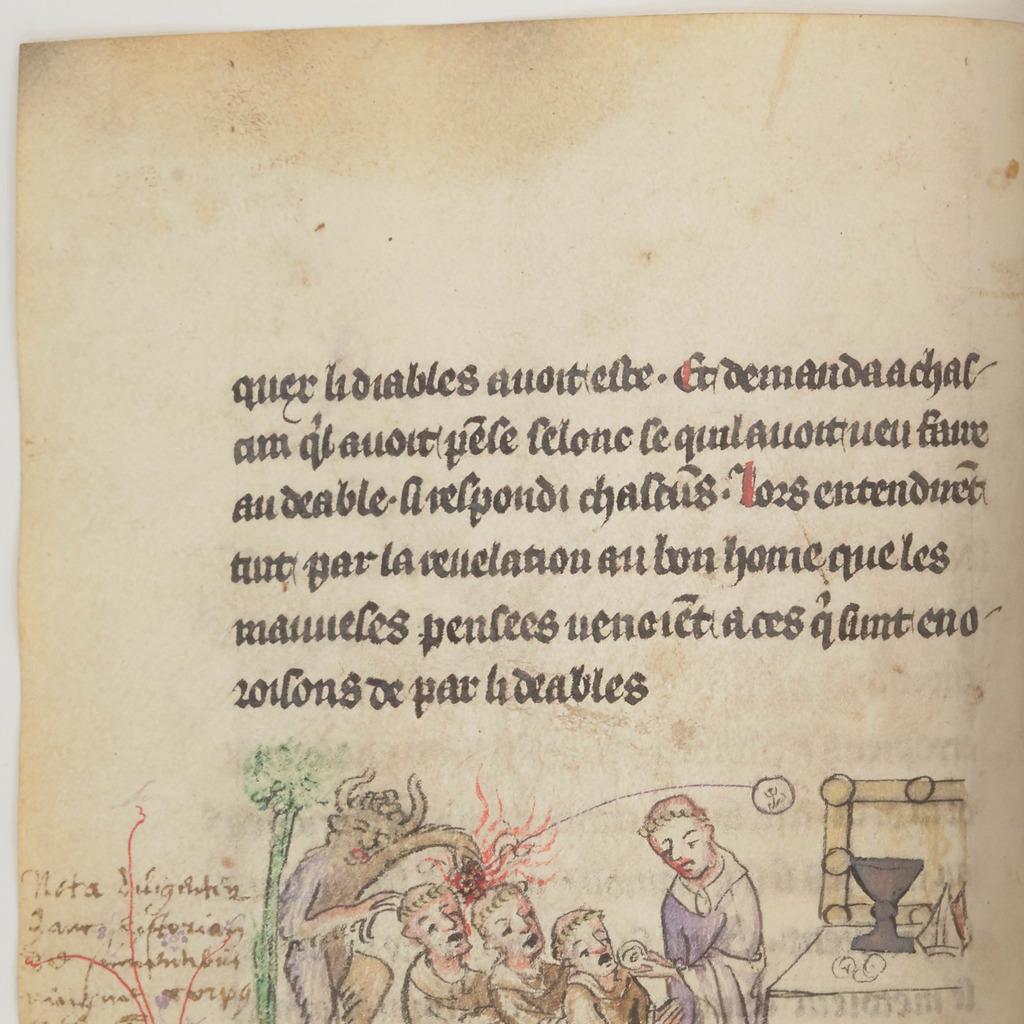 quer li diables auoit este. Et demanda a chas-
cun q'l auoit pēse selonc se quil auoit ueu faire
au deable. si respondi chascūs. Lors entendirēt
tuit par la reuelation au bon home que les
mauueses pensees uenoiēt a ces q' sunt en o-
roisons de par li deables
Nota diligenter
hanc historiam